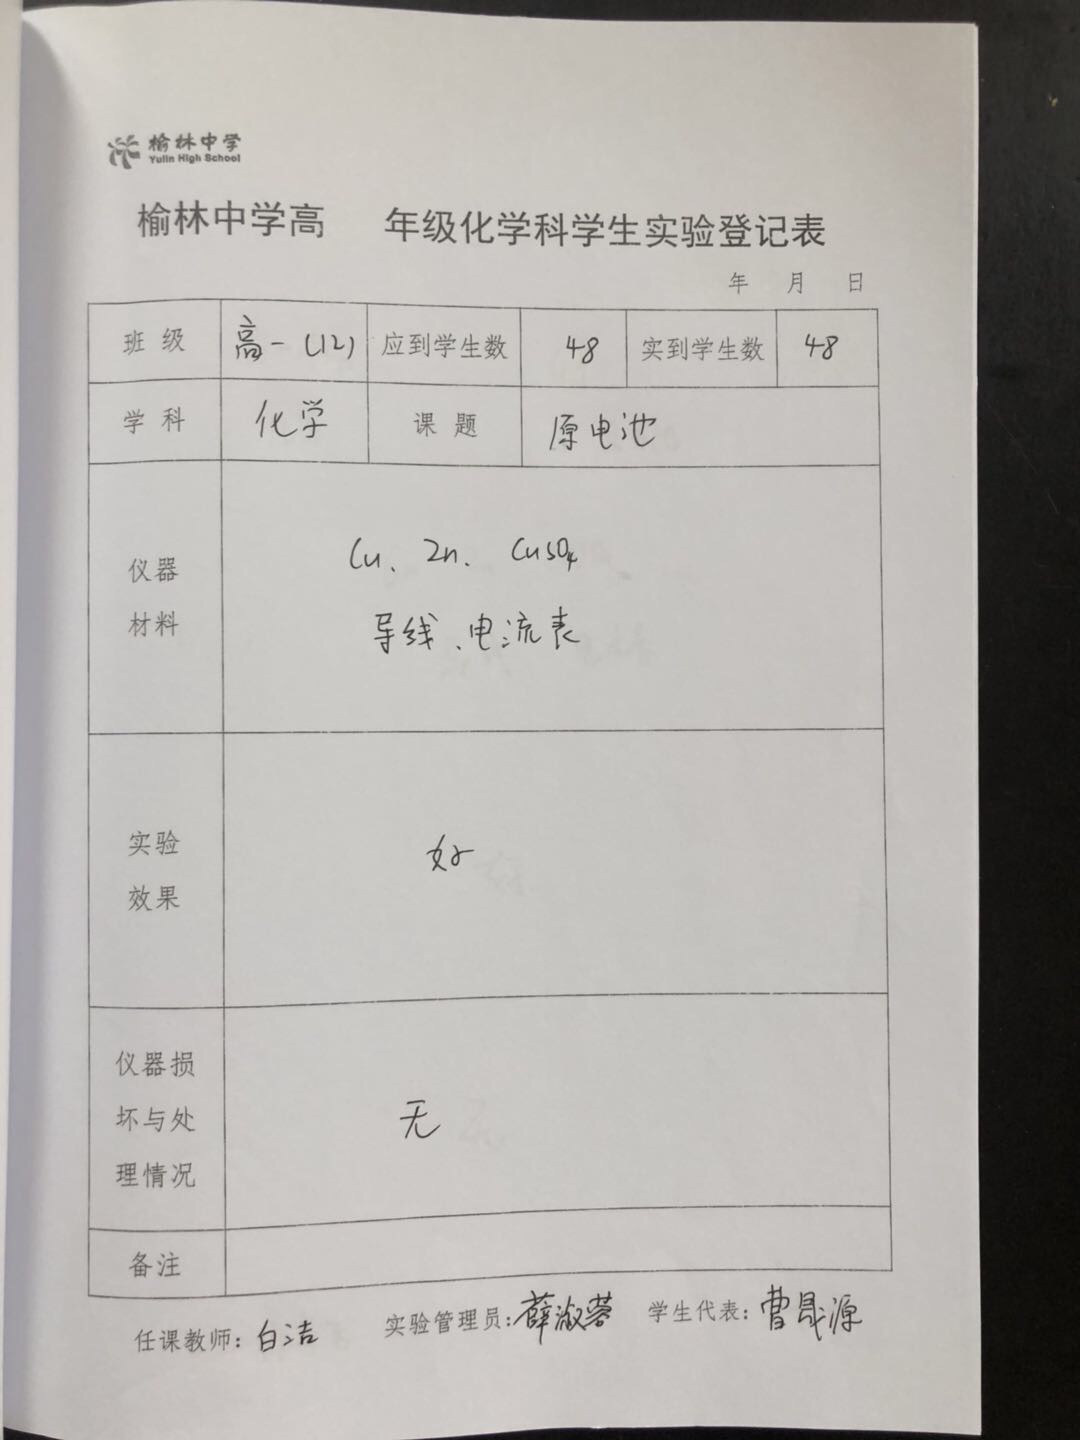 榆林中学
Yulin High School
榆林中学高 年级化学科学生实验登记表
年 月 日
班级 高一(12) 应到学生数 48 实到学生数 48
学科 化学 课题 原电池
仪器
材料
Cu、Zn、CuSO4
导线、电流表
实验
效果
好
仪器损
坏与处
理情况
无
备注
任课教师：白洁 实验管理员：薛淑蓉 学生代表：曹晟源